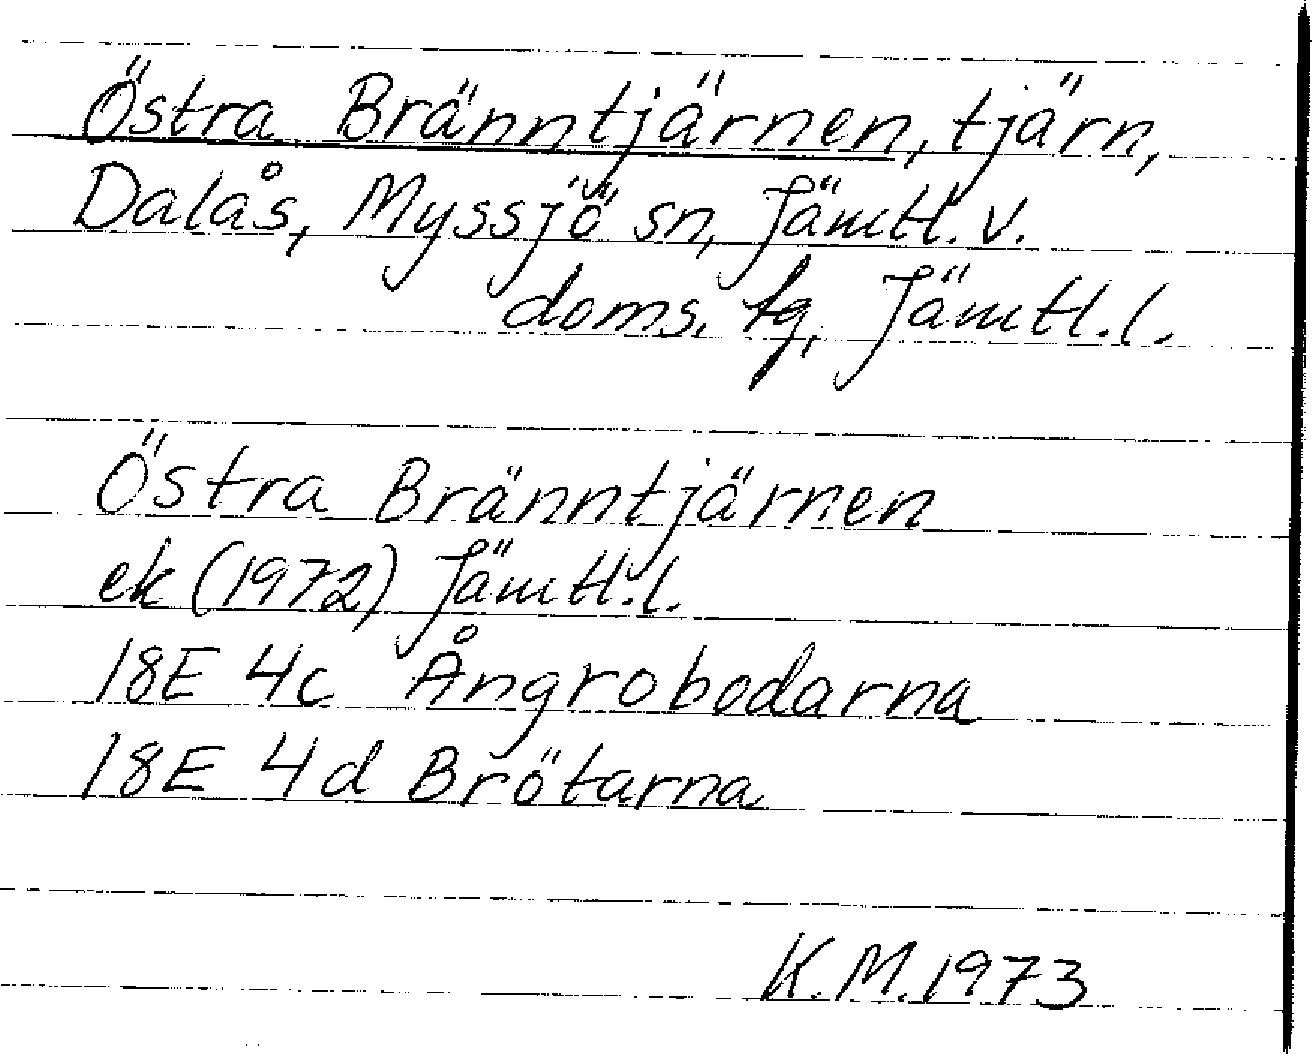 Östra Bränntjärnen, tjärn,
Dalås, Myssjö sn, Jämtl. v.
doms. tg, Jämtl. l.
Östra Bränntjärnen
ek (1972) Jämtl. l.
18E 4c Ångrobodarna
18E 4d Brötarna
K. M. 1973